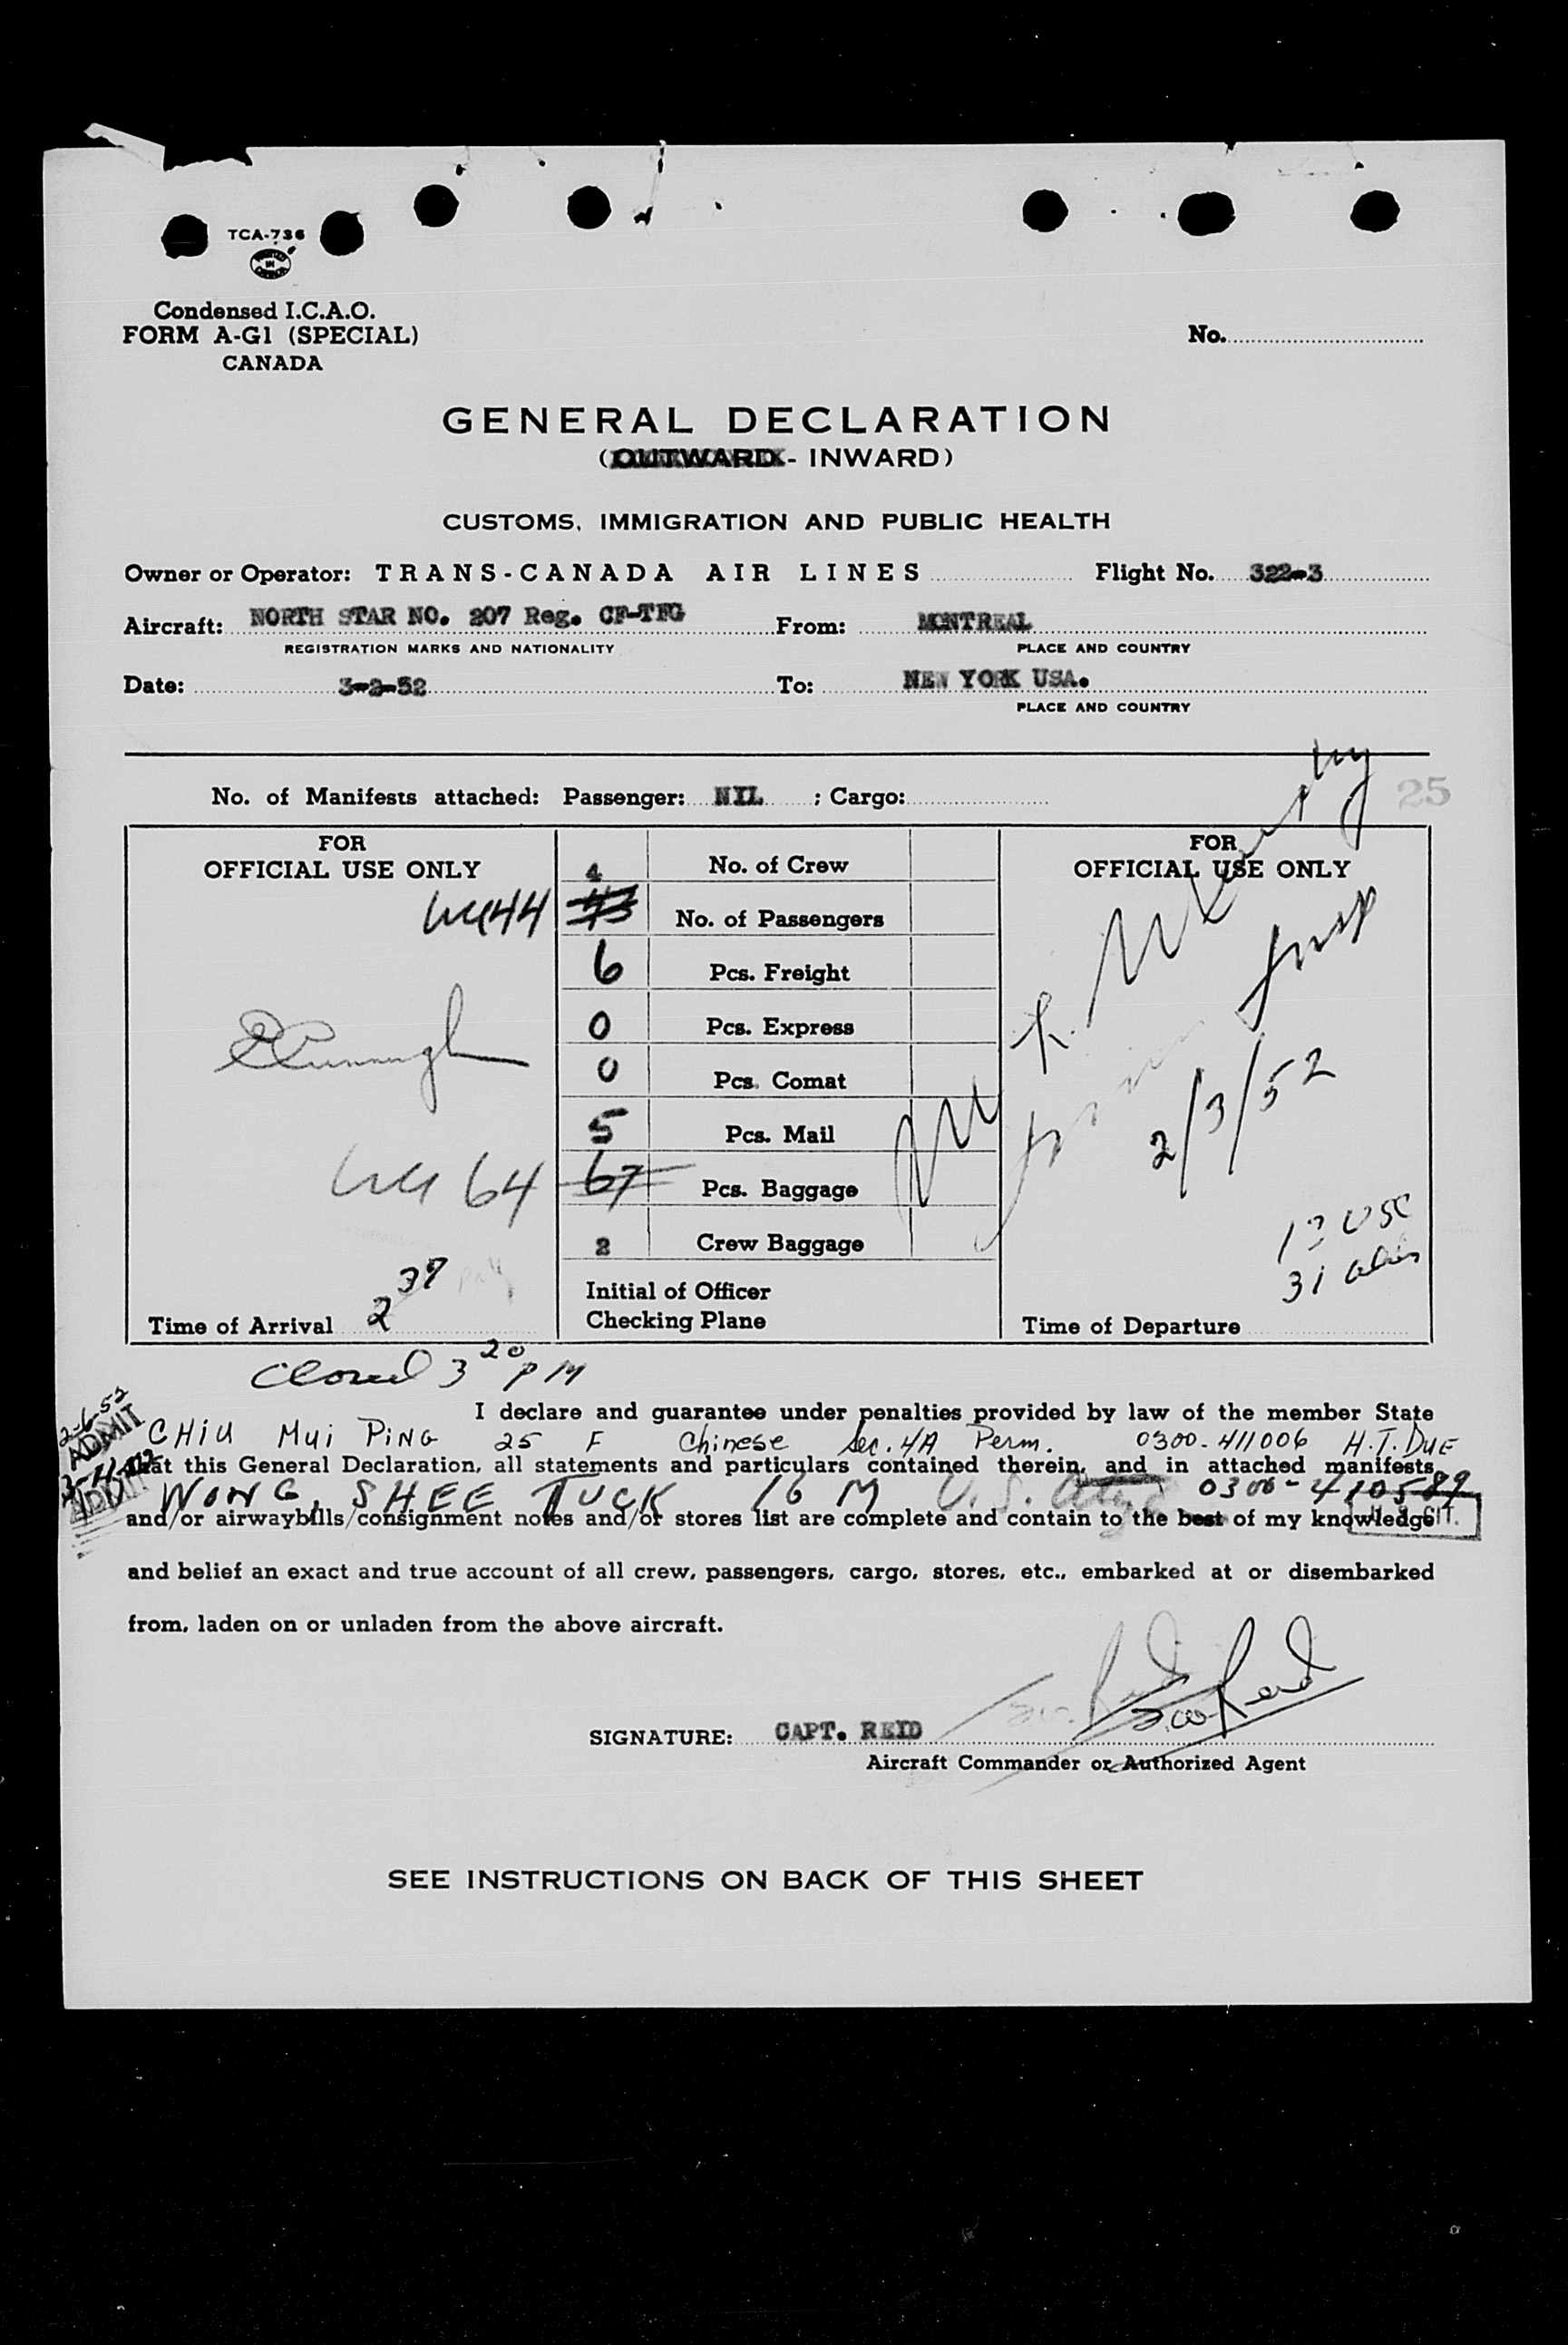 TCA-736
Condensed I.C.A.O.
FORM A-G1 (SPECIAL)
CANADA
No.
GENERAL DECLARATION
(OUTWARD - INWARD)
CUSTOMS, IMMIGRATION AND PUBLIC HEALTH
Owner or Operator: TRANS-CANADA AIR LINES Flight No. 322-3
Aircraft: NORTH STAR NO. 207 Reg. CF-TFG From: MONTREAL
REGISTRATION MARKS AND NATIONALITY PLACE AND COUNTRY
Date: 3-2-52 To: NEW YORK USA.
PLACE AND COUNTRY
No. of Manifests attached: Passenger: NIL ; Cargo:
25
FOR
OFFICIAL USE ONLY
44
64
Time of Arrival 2 37
4 No. of Crew
No. of Passengers
6 Pcs. Freight
0 Pcs. Express
0 Pcs. Comat
5 Pcs. Mail
67 Pcs. Baggage
2 Crew Baggage
Initial of Officer
Checking Plane
FOR
OFFICIAL USE ONLY
2/3/52
13 USC
31
Time of Departure
Closed 3 20 PM
2-6-52
ADMIT
I declare and guarantee under penalties provided by law of the member State
CHIU Mui PiNG 25 F Chinese Sec. 4A Perm. 0300-411006 H.T. DUE
that this General Declaration, all statements and particulars contained therein, and in attached manifests,
WONG, SHEE TUCK 16 M U.S. 0300-410589
and/or airwaybills/consignment notes and/or stores list are complete and contain to the best of my knowledge
and belief an exact and true account of all crew, passengers, cargo, stores, etc., embarked at or disembarked
from, laden on or unladen from the above aircraft.
SIGNATURE: CAPT. REID
Aircraft Commander or Authorized Agent
SEE INSTRUCTIONS ON BACK OF THIS SHEET